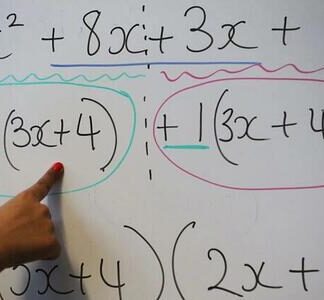 ² + 8x + 3x +
(3x+4) + 1(3x + 4
x+4)(2x +